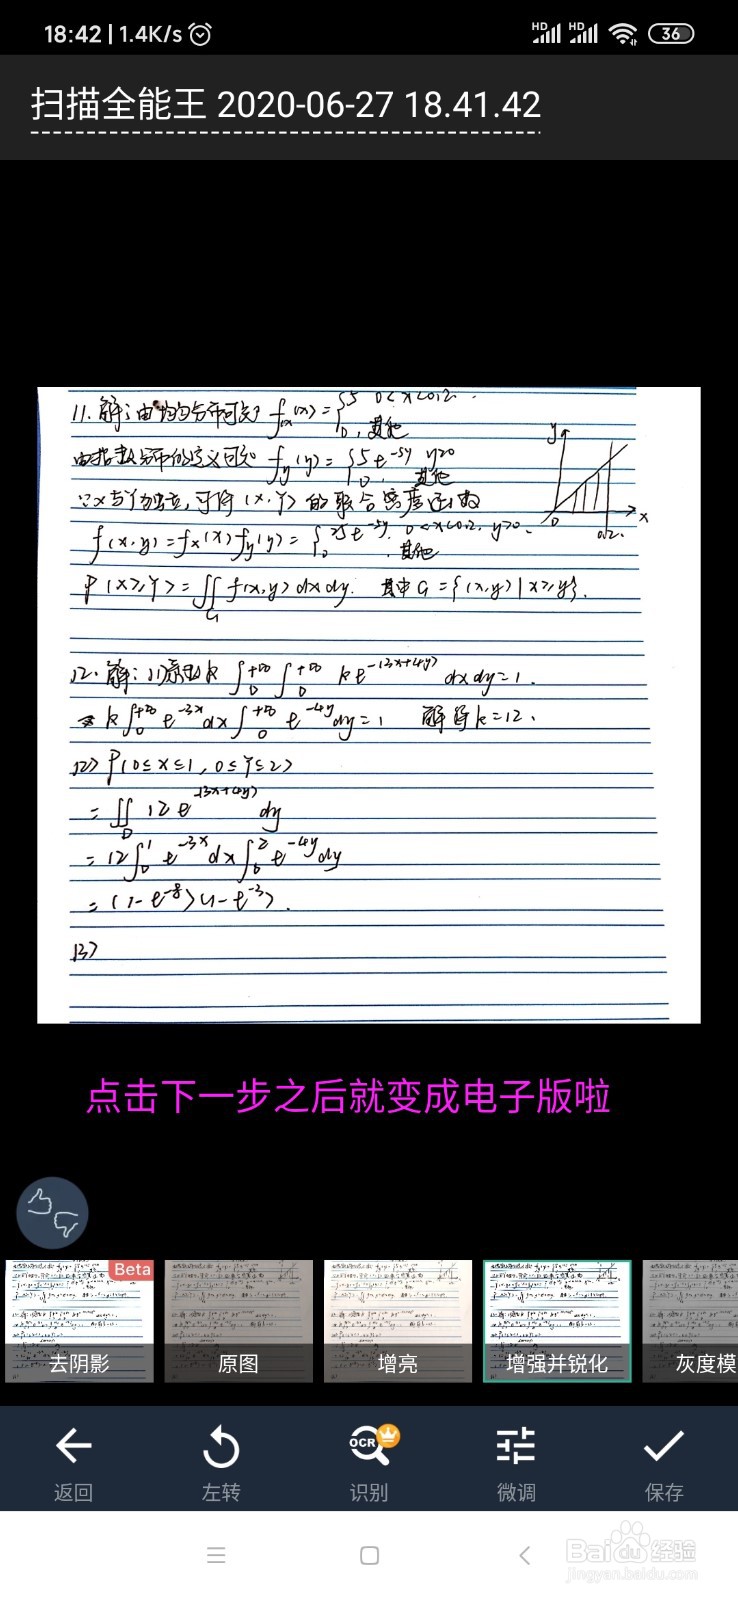 18:42 | 1.4K/s
HD HD 36
扫描全能王 2020-06-27 18.41.42
11. 解:由均匀分布可知 fx(x)={5 0<x<0.2.
0, 其他
由指数分布的定义可知 fy(y)={5e^-5y y≥0
0. 其他
∵X与Y独立,可得(X,Y)的联合密度函数
y
0 0.2. x
f(x,y)=fx(x)fy(y)={25e^-5y. 0<x<0.2, y>0.
0 . 其他
P(X≥Y)=∬f(x,y)dxdy. 其中G={(x,y)|x≥y}.
G
12. 解:(1) k ∫0^+∞ ∫0^+∞ ke^-(3x+4y) dxdy=1.
k∫0^+∞ e^-3x dx∫0^+∞ e^-4y dy=1 解得k=12.
(2) P(0≤X≤1, 0≤Y≤2)
=∬ 12e^-(3x+4y) dy
D
=12∫0^1 e^-3x dx∫0^2 e^-4y dy
=(1-e^-8)(1-e^-3).
(3)
点击下一步之后就变成电子版啦
Beta
去阴影 原图 增亮 增强并锐化 灰度模
OCR
返回 左转 识别 微调 保存
Baidu经验
jingyan.baidu.com